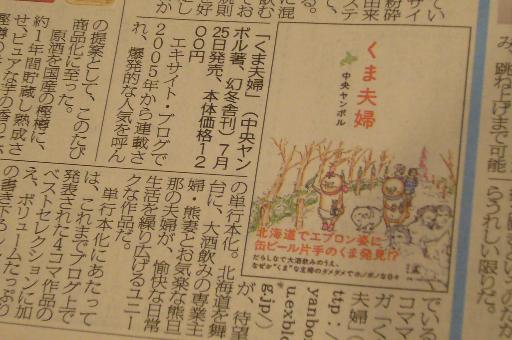 み、跳ね上げまで可能
らうれしい限りだ。
くま夫婦
中央ヤンボル
北海道でエプロン姿に
缶ビール片手のくま発見!?
だらしなくて大酒飲みのうえ、
なぜか“くま”な主婦のダメダメでホノボノな日々
「くま夫婦」(中央ヤン
ボル著、幻冬舎刊)7月
25日発売、本体価格12
00円
エキサイト・ブログで
2005年から連載さ
れ、爆発的な人気を呼ん
でいる
コママ
ガ「く
夫婦」(
ttp://
yanbo
u.exbl
g.jp/)
が、待望
の単行本化。北海道を舞
台に、大酒飲みの専業主
婦・熊妻とお気楽な熊旦
那の夫婦が、愉快な日常
生活を繰り広げるユニー
クな作品だ。
単行本化にあたって
は、これまでブログ上で
発表された4コマ作品の
ベストセレクションに加
え、ボリュームたっぷり
の書き下ろし
の提案として、このたび
商品化に至った。
原酒を国産の樫樽に、
約1年間貯蔵し熟成さ
せ、ピュアな芋の香りは